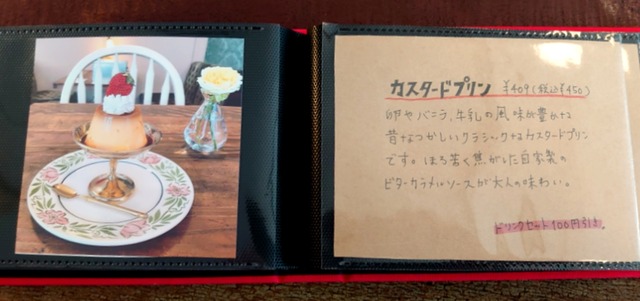 カスタードプリン ¥409(税込¥450)
卵やバニラ、牛乳の風味が豊かな
昔なつかしいクラシックなカスタードプリン
です。ほろ苦く焦がした自家製の
ビターカラメルソースが大人の味わい。
ドリンクセット100円引き。